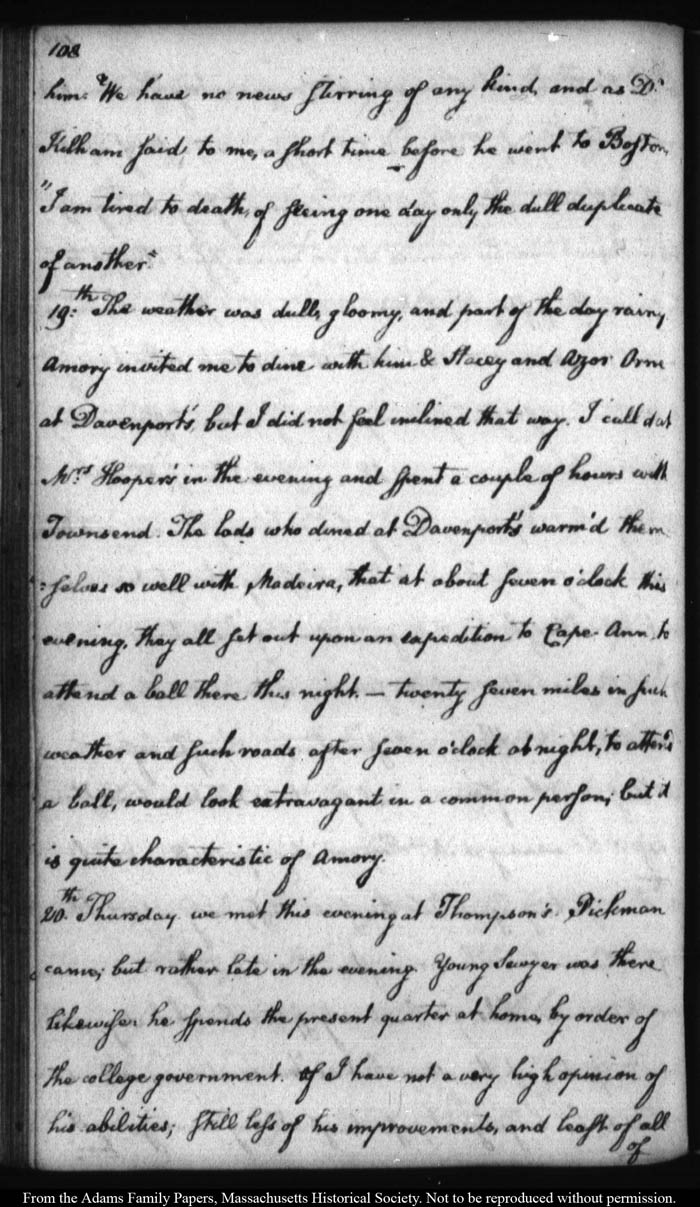 108
him. We have no news stirring of any kind, and as Dr.
Kilham said, to me, a short time before he went to Boston,
"I am tired to death, of seeing one day only the dull duplicate
of another."
19:th The weather was dull, gloomy, and part of the day rainy,
Amory invited me to dine with him & Stacey and Azor Orne
at Davenport's, but I did not feel inclined that way. I call'd at
Mrs. Hooper's in the evening and spent a couple of hours with
Townsend. The lads who dined at Davenport's warm'd them
:selves so well with Madeira, that at about seven o'clock this
evening, they all set out upon an expedition to Cape-Ann, to
attend a ball there this night. — twenty seven miles in such
weather and such roads after seven o'clock at night, to attend
a ball, would look extravagant in a common person; but it
is quite characteristic of Amory.
20.th Thursday. we met this evening at Thompson's. Pickman
came; but rather late in the evening. Young Sawyer was there
likewise: he spends the present quarter at home, by order of
the college government. I have not a very high opinion of
his abilities; still less of his improvements, and least of all
of
From the Adams Family Papers, Massachusetts Historical Society. Not to be reproduced without permission.